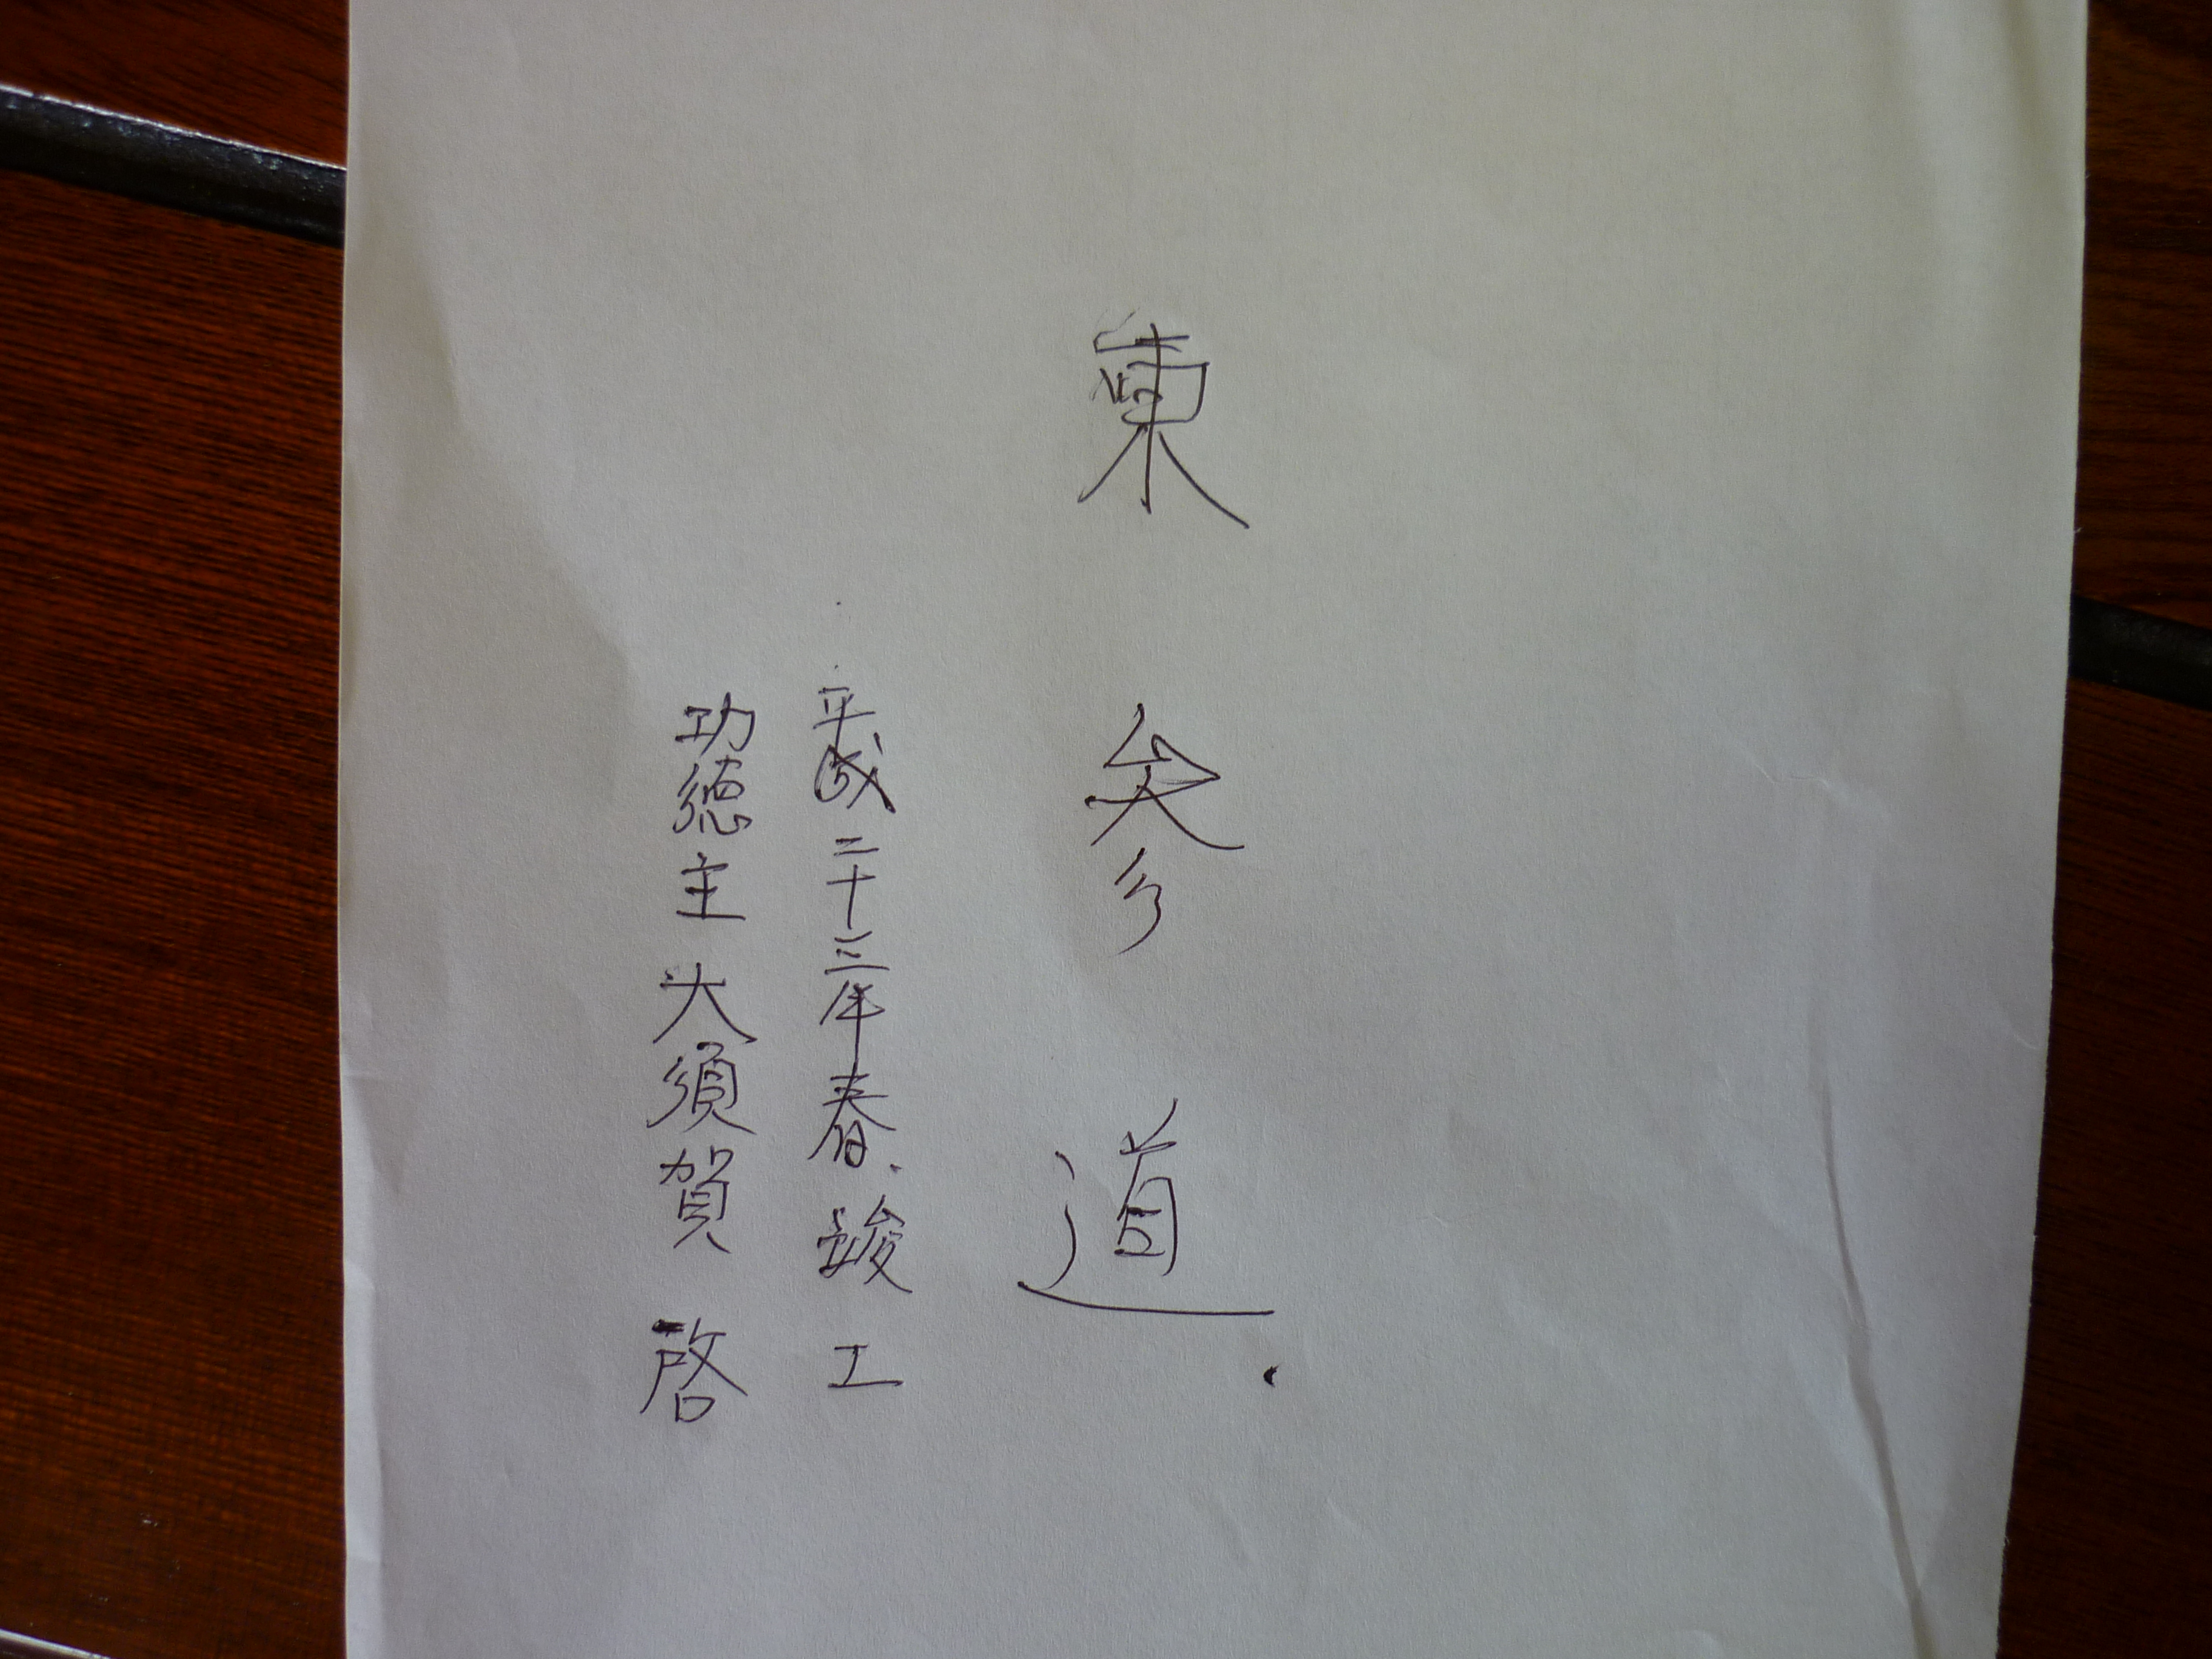 東参道
平成二十三年春竣工
功徳主大須賀啓